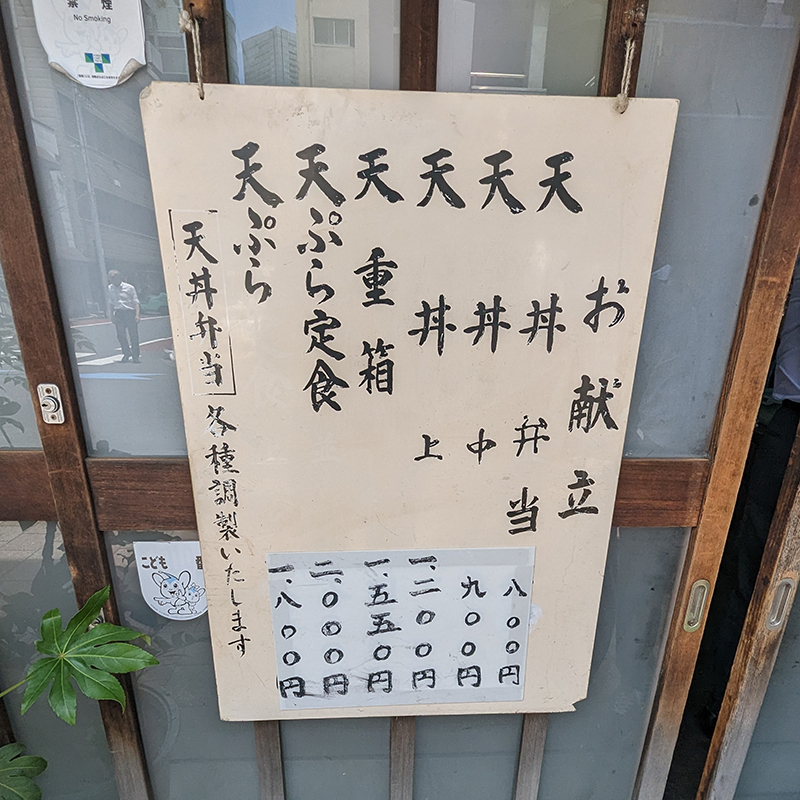 禁煙
No Smoking
お献立
天丼弁当
八〇〇円
天丼中
九〇〇円
天丼上
一、二〇〇円
天重箱
一、五五〇円
天ぷら定食
二、〇〇〇円
天ぷら
一、八〇〇円
天丼弁当各種調製いたします
こども